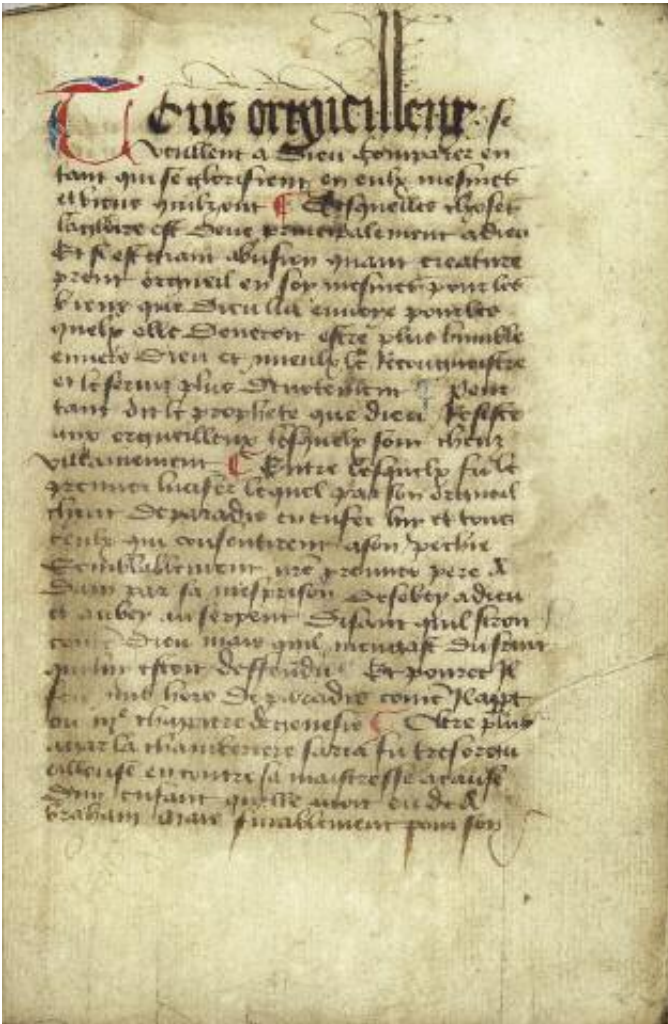 Tous orgueilleux se
veullent a Dieu comparer en
tant qui se glorifient en eulx mesmes
et biens quilz ont ¶ Desquelles choses
la gloire est deue principalement a dieu
Et si est grant abusion quant creature
prent orgueil en soy mesmes pour les
biens que Dieu lui envoye pour les
quelx elle devroit estre plus humble
envers Dieu et mieulx le recongnoistre
et le servir plus devotement ¶ Pour
tant dit le prophete que dieu Resiste
aux orgueilleux lesquelx sont cheuz
villainement ¶ Entre lesquelx fu le
premier lucifer lequel par son orgueil
chut de paradis en enfer luy et tous
ceulx qui consentirent a son pechie
Semblablement nre premier pere A
dam par sa mesprison desobey a dieu
et aubey au serpent Disant quil seroit
come Dieu mais quil mengast du fruit
qui lui estoit deffendu Et pource Il
fu mis hors de paradis come Il appt
ou iije chappitre de genesis ¶ Oltre plus
agar la chamberiere saria fu tresorgu
eilleuse encontre sa maistresse a cause
dun enfant quelle avoit eu de A
braham mais finablement pour son